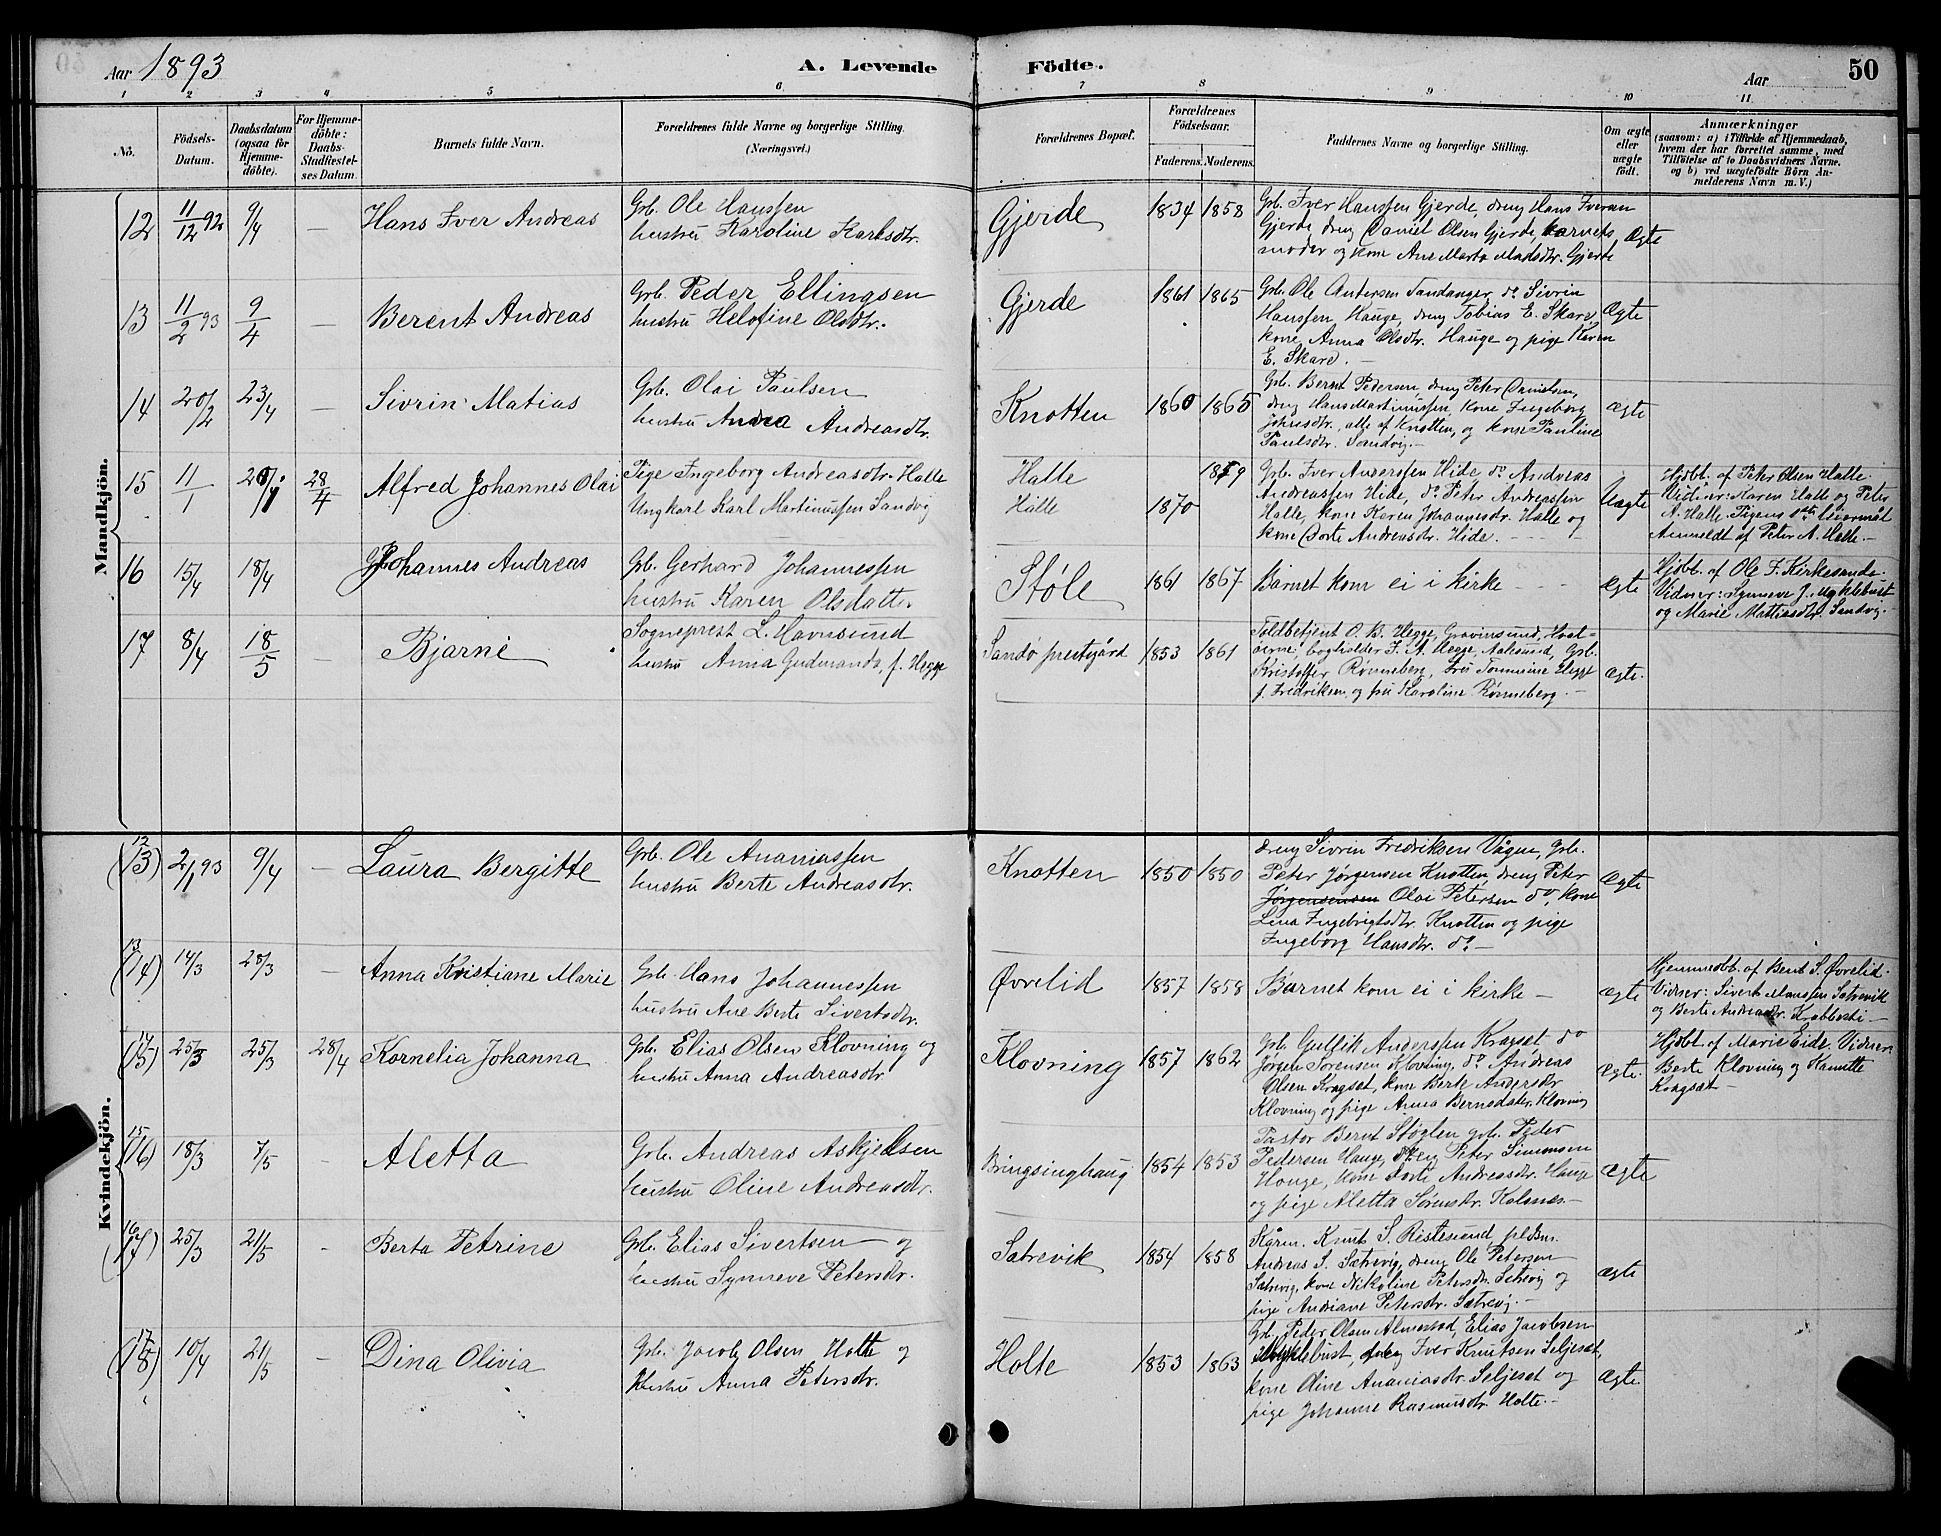 Aar 1893 A. Levende Födte. Aar 50
1 2 3 4 5 6 7 8 9 10 11
No.
Födsels-
Datum.
Daabsdatum
(ogsaa for
Hjemme-
döbte).
For Hjemme-
döbte:
Daabs-
Stadfæstel-
ses Datum.
Barnets fulde Navn.
Forældrenes fulde Navne og borgerlige Stilling.
(Næringsvei.)
Forældrenes Bopæl.
Forældrenes
Födselsaar.
Faderens. Moderens.
Faddernes Navne og borgerlige Stilling.
Om ægte
eller
uægte
födt.
Anmærkninger
(saasom: a) i Tilfælde af Hjemmedaab,
hvem der har forrettet samme, med
Tilföielse af to Daabsvidners Navne.
og b) ved uægtefödte Börn An-
melderens Navn m. V.)
Mandkjön.
12 11/12 92 9/4 — Hans Iver Andreas
Grb. Ole Hanssen
hustru Karoline Karlsdtr.
Gjerde 1834 1858
Grb. Iver Hanssen Gjerde, dreng Hans Iversen
Gjerde, dreng Daniel Olsen Gjerde, barnets
moder og kone Ane Marta Madsdtr. Gjerde
Ægte
13 11/2 93 9/4 — Berent Andreas
Grb. Peder Ellingsen
hustru Helofine Olsdtr.
Gjerde 1861 1865
Grb. Ole Andersen Sandanger, do Sivrin
Hanssen Hauge, dreng Tobias E. Skare,
kone Anna Olsdtr. Hauge og pige Karen
E. Skare. —
Ægte
14 20/2 23/4 — Sivrin Matias
Grb. Olai Paulsen
hustru Andrea Andreasdtr.
Knotten 1860 1865
Grb. Bernt Pedersen, dreng Peter Danielsen,
dreng Hans Martinussen, kone Ingeborg
Johnsdtr., alle af Knotten, og kone Pauline
Paulsdtr. Sandvig. —
ægte
15 11/1 28/4 Alfred Johannes Olai
Pige Ingeborg Andreasdtr. Halle
Ungkarl Karl Martinussen Sandvig
Halle
Halle 1870
Grb. Iver Anderssen Hide, do Andreas
Andreassen Hide, do Peter Andreassen
Halle, kone Karen Johannesdtr. Halle og
kone Dorte Andreasdtr. Hide. —
Uægte
Hjdbt. af Peter Olsen Halle
Vidner: Karen Halle og Peter
A. Halle. Pigens 1ste Leiermål
Anmeldt af Peter A. Halle. —
16 15/4 18/4 Johannes Andreas
Grb. Gerhard Johannessen
hustru Karen Olsdatter
Støle 1861 1867 Barnet kom ei i kirke — ægte
Hjdbt. af Ole F. Kirkesunde.
Vidner: Synneve J. Myklebust
og Marie Mattiasdtr. Sandvig. —
17 8/4 18/5 — Bjarne
Sogneprest L. Havnsund
hustru Anna Gudmunda, f. Hegge
Sandø prestgård 1853 1861
Toldbetjent O. B. Hegge,
bogholder J. A. Hegge, Aalesund, Grb.
Kristoffer Rønneberg, fru Hegge
f. Fredriksen, og fru Karoline Rønneberg. —
ægte.
Kvindekjön.
12 (13) 2/1 93 9/4 — Laura Bergitte
Grb. Ole Ananiassen
hustru Berte Andreasdtr.
Knotten 1850 1850
dreng Sivrin Fredriksen Vågen, Grb.
Peter Jørgensen Knotten, dreng Peter
Jørgensensen Olai Petersen do, kone
Lina Ingebrigtsdtr. Knotten og pige
Ingeborg Hansdtr. do —
ægte
13 (14) 14/3 28/3 — Anna Kristiane Marie
Grb. Hans Johannessen
hustru Ane Berte Sivertsdtr.
Øvrelid 1857 1858 Barnet kom ei i kirke — ægte
Hjemmedbt. af Bent S. Øvrelid.
Vidner: Sivert Hanssen Sætrevik
og Berte Andreasdtr. Krabbesti —
14 (15) 25/3 25/3 28/4 Kornelia Johanna
Grb. Elias Olsen Klovning og
hustru Anna Andreasdtr.
Klovning 1857 1862
Grb. Gullik Anderssen Kragset, do
Jørgen Sørensen Klovning, do Andreas
Olsen Kragset, kone Berte Andersdtr.
Klovning og pige Anna Berntsdatter Klovning
ægte.
Hjdbt. af Marie Eide. Vidner:
Berte Klovning og Hanette
Kragset —
15 (16) 18/3 7/5 — Aletta
Grb. Andreas Askjelsen
hustru Oline Andreasdtr.
Bringsinghaug 1854 1853
Pastor Bernt Støylen, grb. Peder
Pedersen Hauge, dreng Peter Simonsen
Hauge, kone Dorte Andreasdtr. Hauge
og pige Aletta Sørensdtr. Kalsnes. —
ægte
16 (17) 25/3 21/5 — Berta Petrine
Grb. Elias Sivertsen og
hustru Synneve Petersdtr.
Sætrevik 1854 1858
Kårm. Knut S. Ristesund,
Andreas S. Sætrevig, dreng Ole Petersen
Sætrevig, kone Nikoline Petersdtr. Sætrevig og
pige Andriane Petersdtr. Sætrevig. —
ægte
17 (18) 10/4 21/5 — Dina Olivia
Grb. Jacob Olsen Holte og
Hustru Anna Petersdtr.
Holte 1853 1863
Grb. Peder Olsen Almestad, Elias Jacobsen
Myklebust, dreng Iver Knutsen Seljeset,
kone Oline Ananiasdtr. Seljeset og
pige Johanne Rasmusdtr. Holte. —
ægte